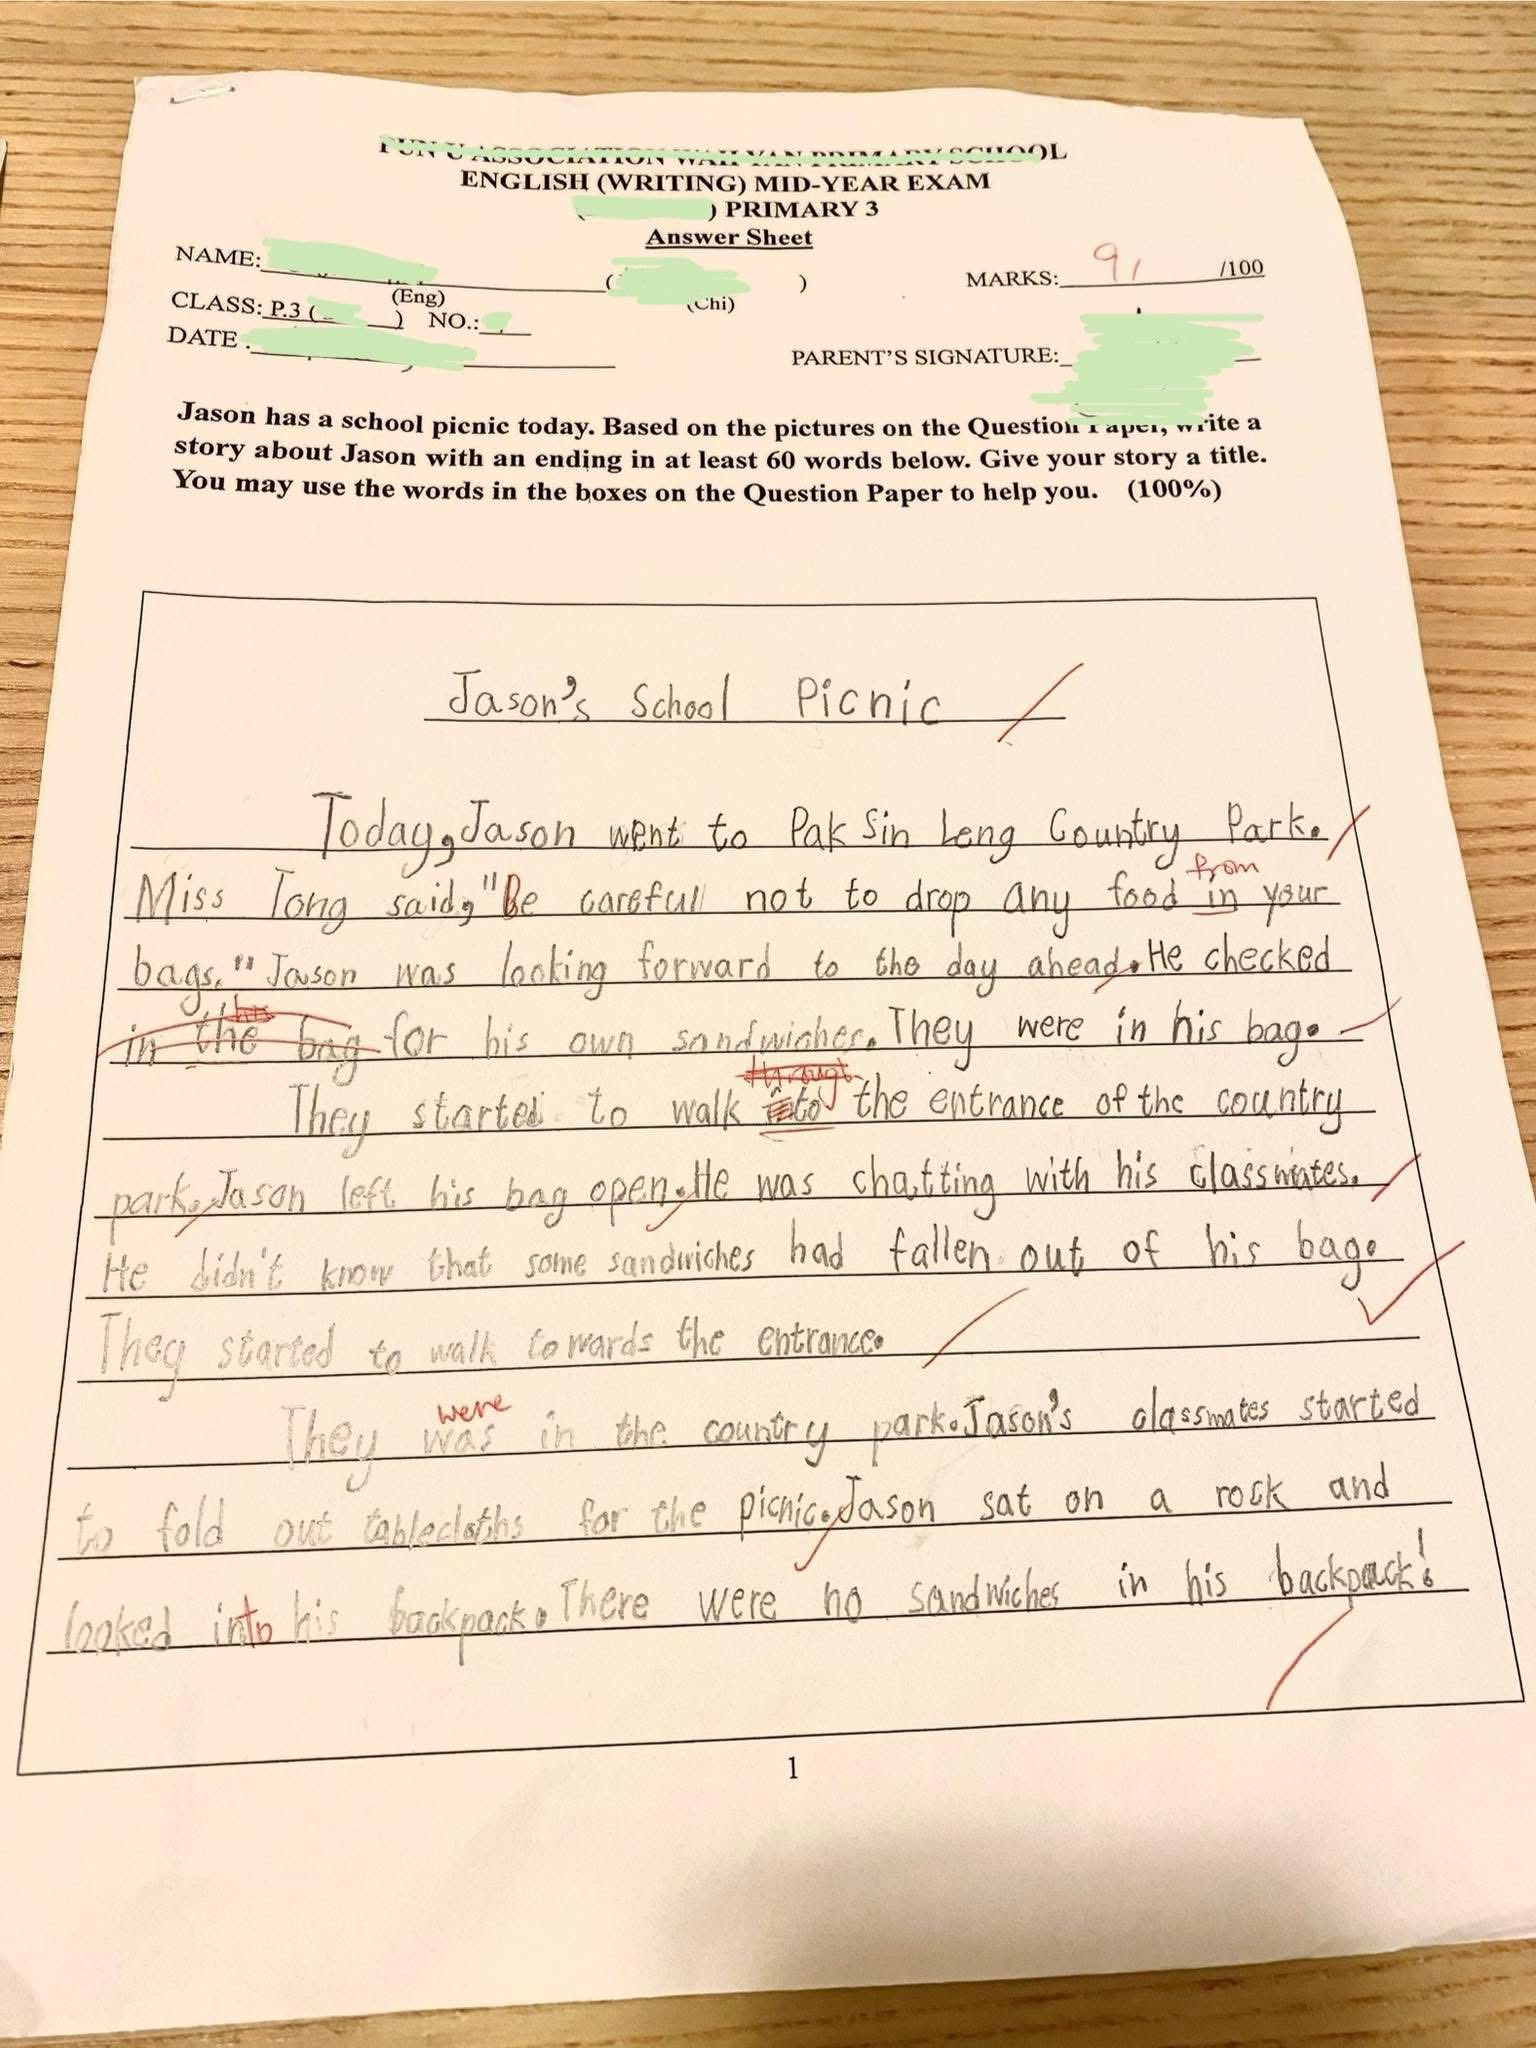 PUN U ASSOCIATION WAH YAN PRIMARY SCHOOL
ENGLISH (WRITING) MID-YEAR EXAM
) PRIMARY 3
Answer Sheet
NAME: ( )
(Eng) (Chi)
MARKS: 91 /100
CLASS: P.3 ( ) NO.:
DATE
PARENT'S SIGNATURE:
Jason has a school picnic today. Based on the pictures on the Question Paper, write a
story about Jason with an ending in at least 60 words below. Give your story a title.
You may use the words in the boxes on the Question Paper to help you. (100%)
Jason's School Picnic
Today, Jason went to Pak Sin Leng Country Park.
from
Miss Tong said, "Be carefull not to drop any food in your
bags." Jason was looking forward to the day ahead. He checked
his
in the bag for his own sandwiches. They were in his bag.
through
They started to walk to the entrance of the country
park. Jason left his bag open. He was chatting with his classmates.
He didn't know that some sandwiches had fallen out of his bag.
They started to walk towards the entrance.
were
They was in the country park. Jason's classmates started
to fold out tablecloths for the picnic. Jason sat on a rock and
looked into his backpack. There were no sandwiches in his backpack!
1